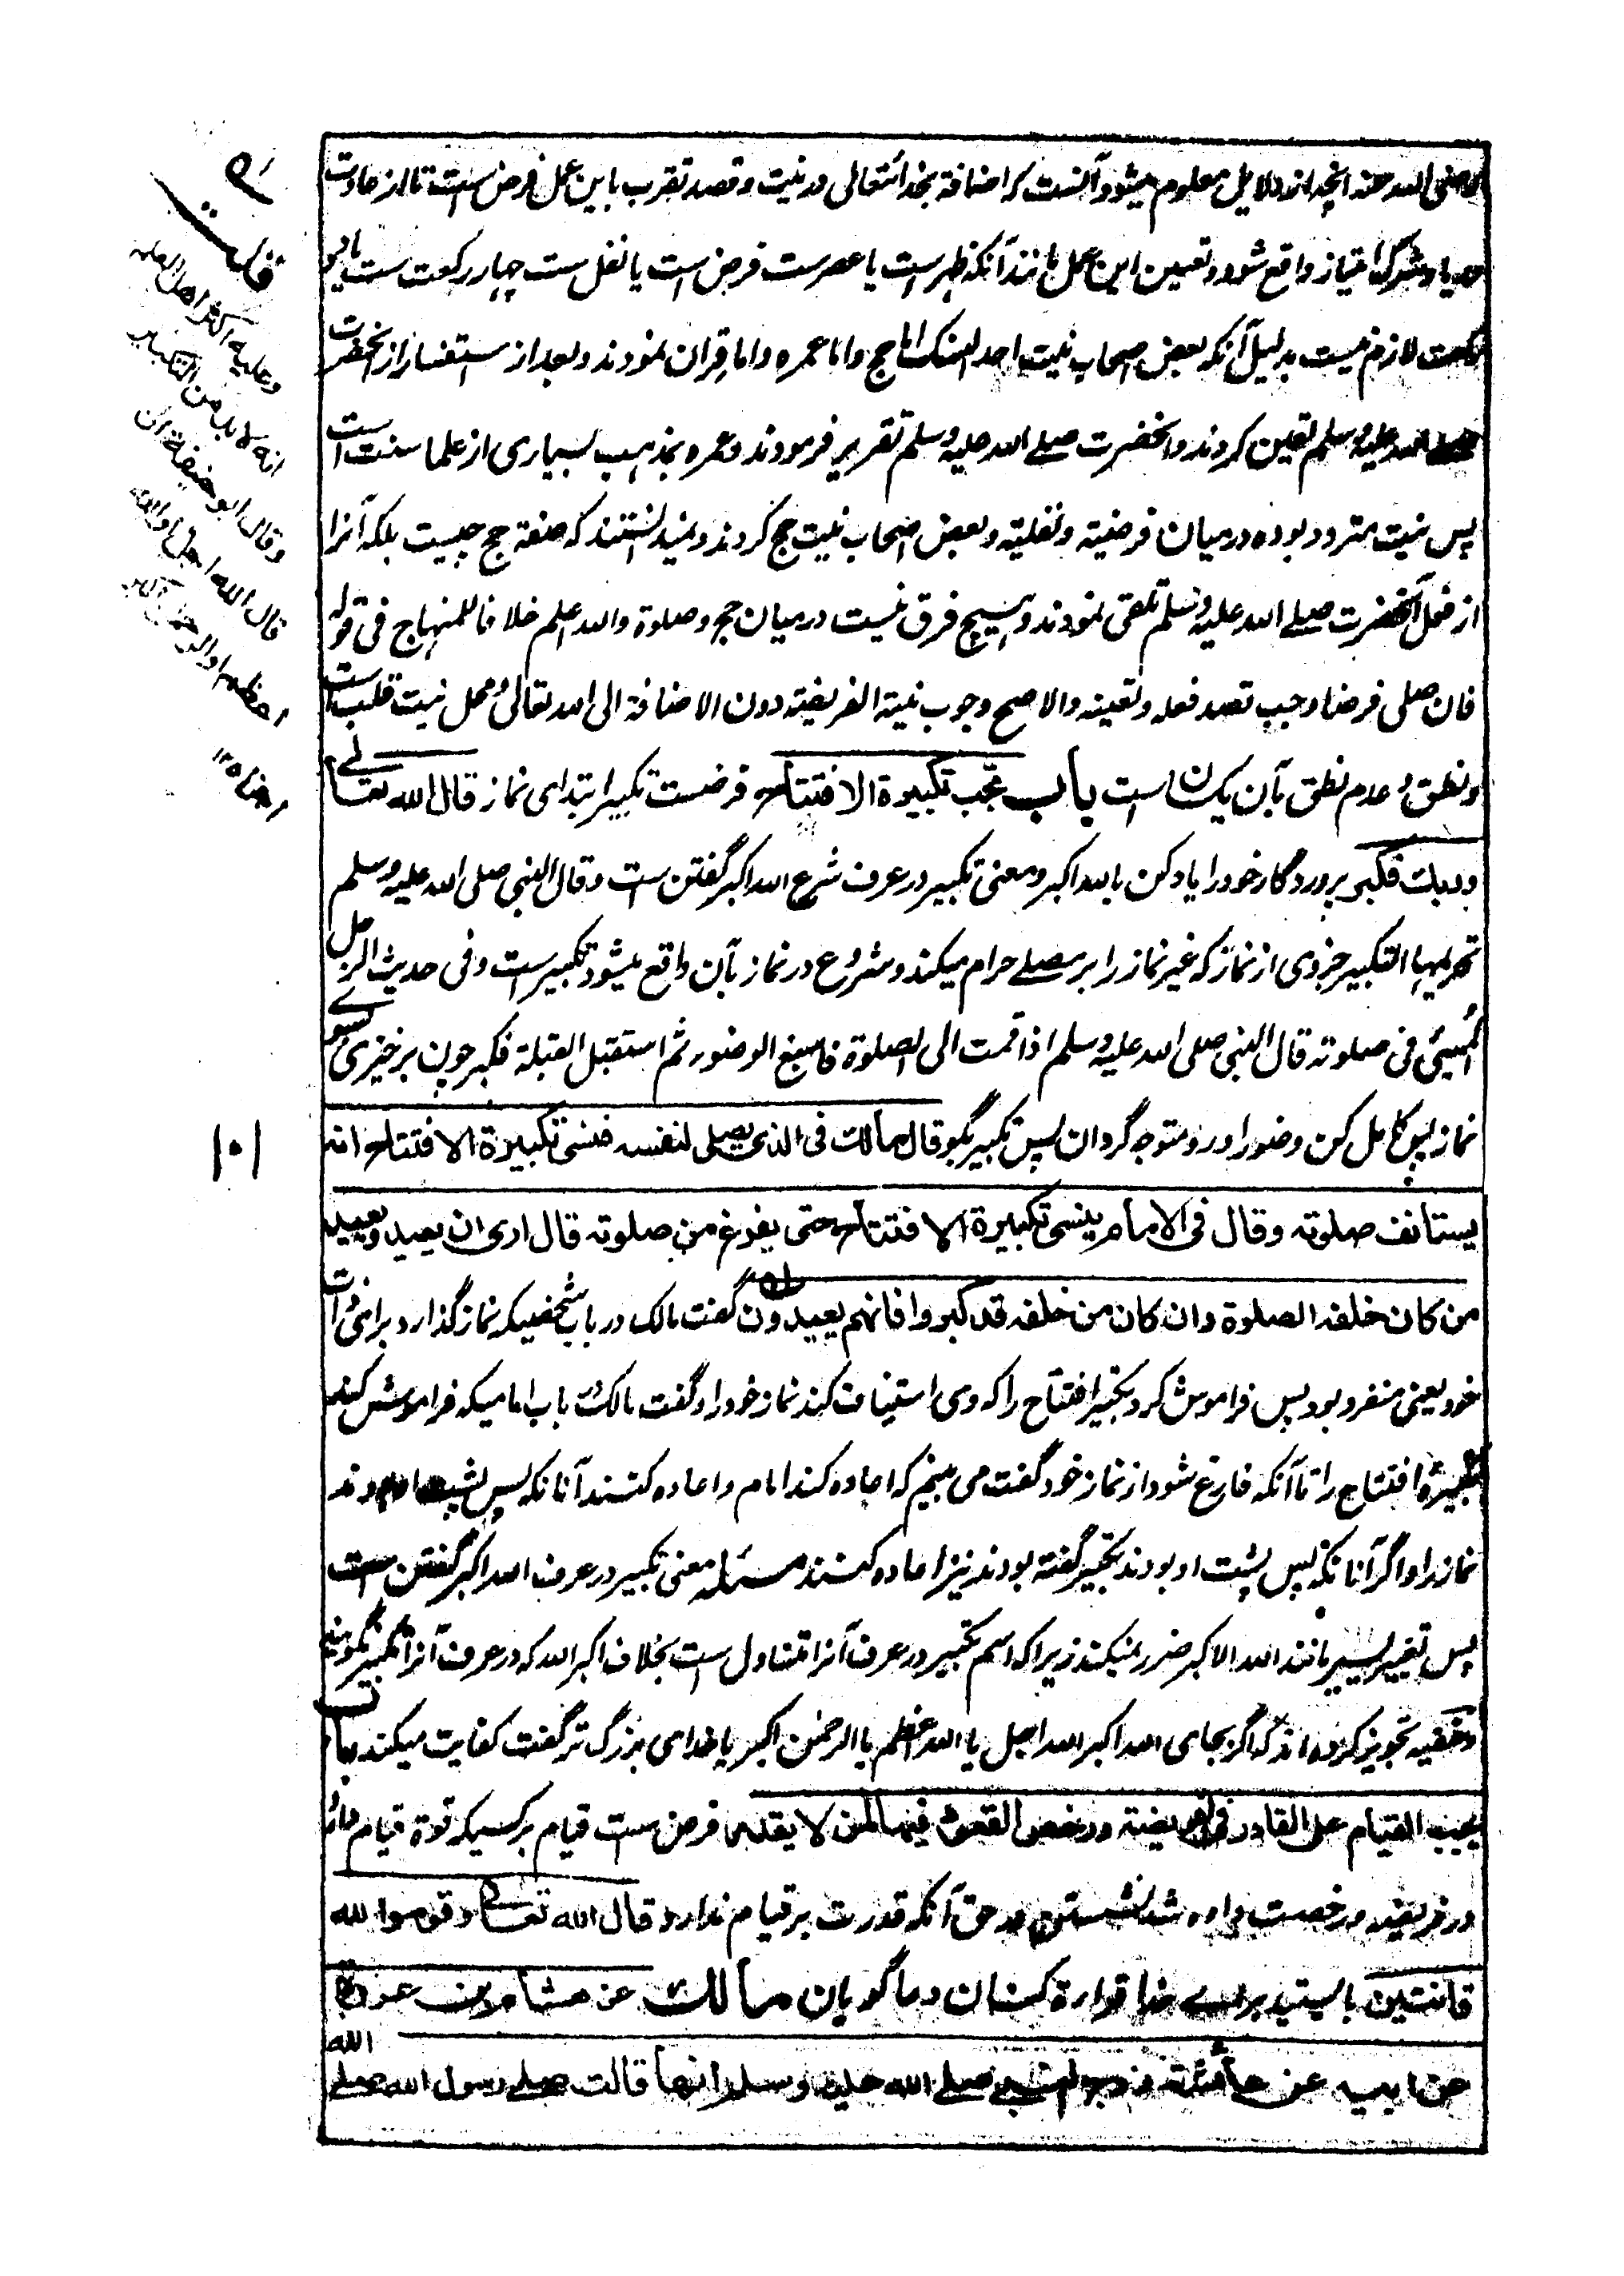 رضی الله عنه آنچه از دلایل معلوم میشود آنست که اضافة بخدائتعالی در نیت و قصد تقرب باین عمل فرض ست تا از عادت
و ریا و شرک امتیاز واقع شود و تعیین این عمل مانند آنکه ظهرست یا عصرست فرض ست یا نفل ست چهار رکعت ست یا دو
رکعت لازم نیست بدلیل آنکه بعض اصحاب نیت احد النسک اما حج و اما عمره و اما قران نمودند و بعد از استفسار از آنحضرت
صلے الله علیه وسلم تعین کردند و آنحضرت صلے الله علیه وسلم تقریر فرمودند و عمره بمذهب بسیاری از علما سنت است
پس نیت متردد بوده درمیان فرضیته و نفلیته و بعض اصحاب نیت حج کردند و نمیدانستند که صفة حج چیست بلکه آنرا
از فعل آنحضرت صلے الله علیه وسلم تلقی نمودند و هیچ فرق نیست درمیان حج و صلوة والله اعلم خلافا للمنهاج فی قوله
فان صلی فرضا وجب قصد فعله وتعینه والاصح وجوب نیة الفریضته دون الاضافة الی الله تعالی و محل نیت قلب است
و نطق و عدم نطق بآن یکسان است باب تجب تکبیرة الافتتاح فرضست تکبیر ابتدای نماز قال الله تعالے
وربك فكبر پروردگار خود را یاد کن بالله اکبر و معنی تکبیر در عرف شرع الله اکبر گفتن ست وقال النبی صلی الله علیه وسلم
تحریمها التکبیر جزوی از نماز که غیر نماز را بر مصلے حرام میکند و شروع در نماز بآن واقع میشود تکبیرست وفی حدیث الرجل
المسیئ فی صلوته قال النبی صلی الله علیه وسلم اذا قمت الی الصلوة فاسبغ الوضوء ثم استقبل القبلة فکبر چون برخیزی بسوے
نماز پس کامل کن وضو را و رو متوجه گردان پس تکبیر بگو قال مالك فی الذی یصلی لنفسه فنسی تکبیرة الافتتاح انه
یستانف صلوته وقال فی الامام ینسی تکبیرة الافتتاح حتی یفرغ من صلوته قال اری ان یعید ویعید
من کان خلفه الصلوة وان کان من خلفه قد کبروا فانهم یعیدون گفت مالک در باب شخصیکه نماز گذارد برای ذات
خود یعنی منفرد بود پس فراموش کرد تکبیر افتتاح را که وی استیناف کند نماز خود را و گفت مالک در باب امامیکه فراموش کند
تکبیرة افتتاح را تا آنکه فارغ شود از نماز خود گفت می بینم که اعاده کند امام و اعاده کنند آنانکه پس پشت او بودند
نماز را و اگر آنانکه پس پشت او بودند تکبیر گفته بودند نیز اعاده کنند مسئله معنی تکبیر در عرف الله اکبر گفتن ست
پس تغییر یسیر مانند الله الاکبر ضرر نمیکند زیرا که اسم تکبیر در عرف آنرا متناول ست بخلاف اکبر الله که در عرف آنرا تکبیر نگویند
و حنفیه تجویز کرده اند که اگر بجای الله اکبر الله اجل یا الله اعظم یا الرحمن اکبر یا خدای بزرگ تر گفت کفایت میکند باب
یجب القیام علی القادر فی الفریضة ورخص القعود فیها لمن لا یقدر فرض ست قیام بر کسیکه قوة قیام دارد
در فریضه و رخصت داده شد نشستن در حق آنکه قدرت بر قیام ندارد قال الله تعالے وقوموا لله
قانتین بایستید برای خدا قراءة کنان دعا گویان مالك عن هشام بن عروة
عن ابیه عن عائشة زوج النبی صلے الله علیه وسلم انها قالت صلے رسول الله صلے الله
قلت
وعلیه اکثر اهل العلم
انه لا بد من التکبیر
وقال ابو حنیفة ان
قال الله اجل او الله
اعظم او الرحمن اکبر
اجزاه ١٢
١٠١